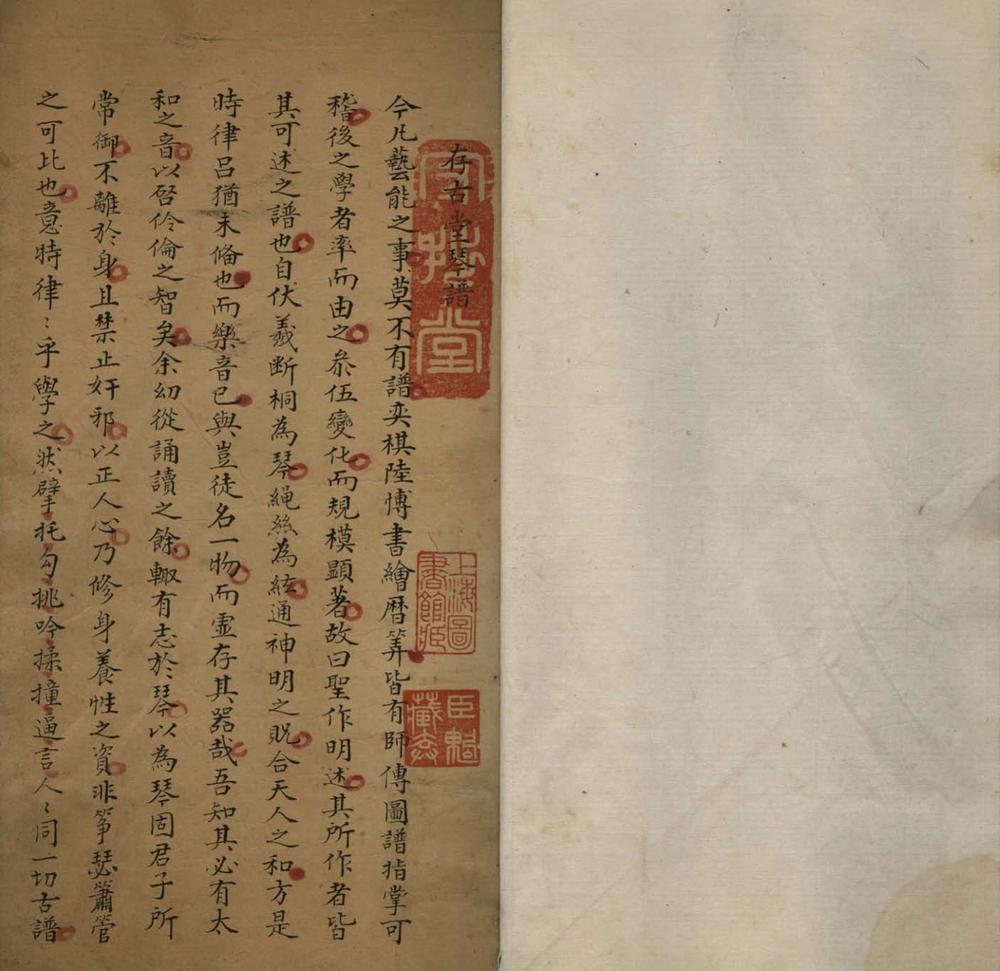 存古堂琴譜
今凡藝能之事莫不有譜奕棋陸愽書繪曆筭皆有師傳圖譜指掌可
稽後之學者率而由之叅伍變化而規模顯著故曰聖作明述其所作者皆
其可述之譜也自伏羲斵桐為琴䋲絲為絃通神明之貺合天人之和方是
時律呂猶未俻也而樂音已與豈徒名一物而虛存其器哉吾知其必有太
和之音以啓伶倫之智矣余幼從誦讀之餘輙有志於琴以為琴固君子所
常御不離於身且禁止奸邪以正人心乃修身養性之資非箏瑟簫管
之可比也意時律〻乎學之然擘托勾挑吟揉撞逼言人〻同一切古譜
上海圖書館藏
臣魁藏